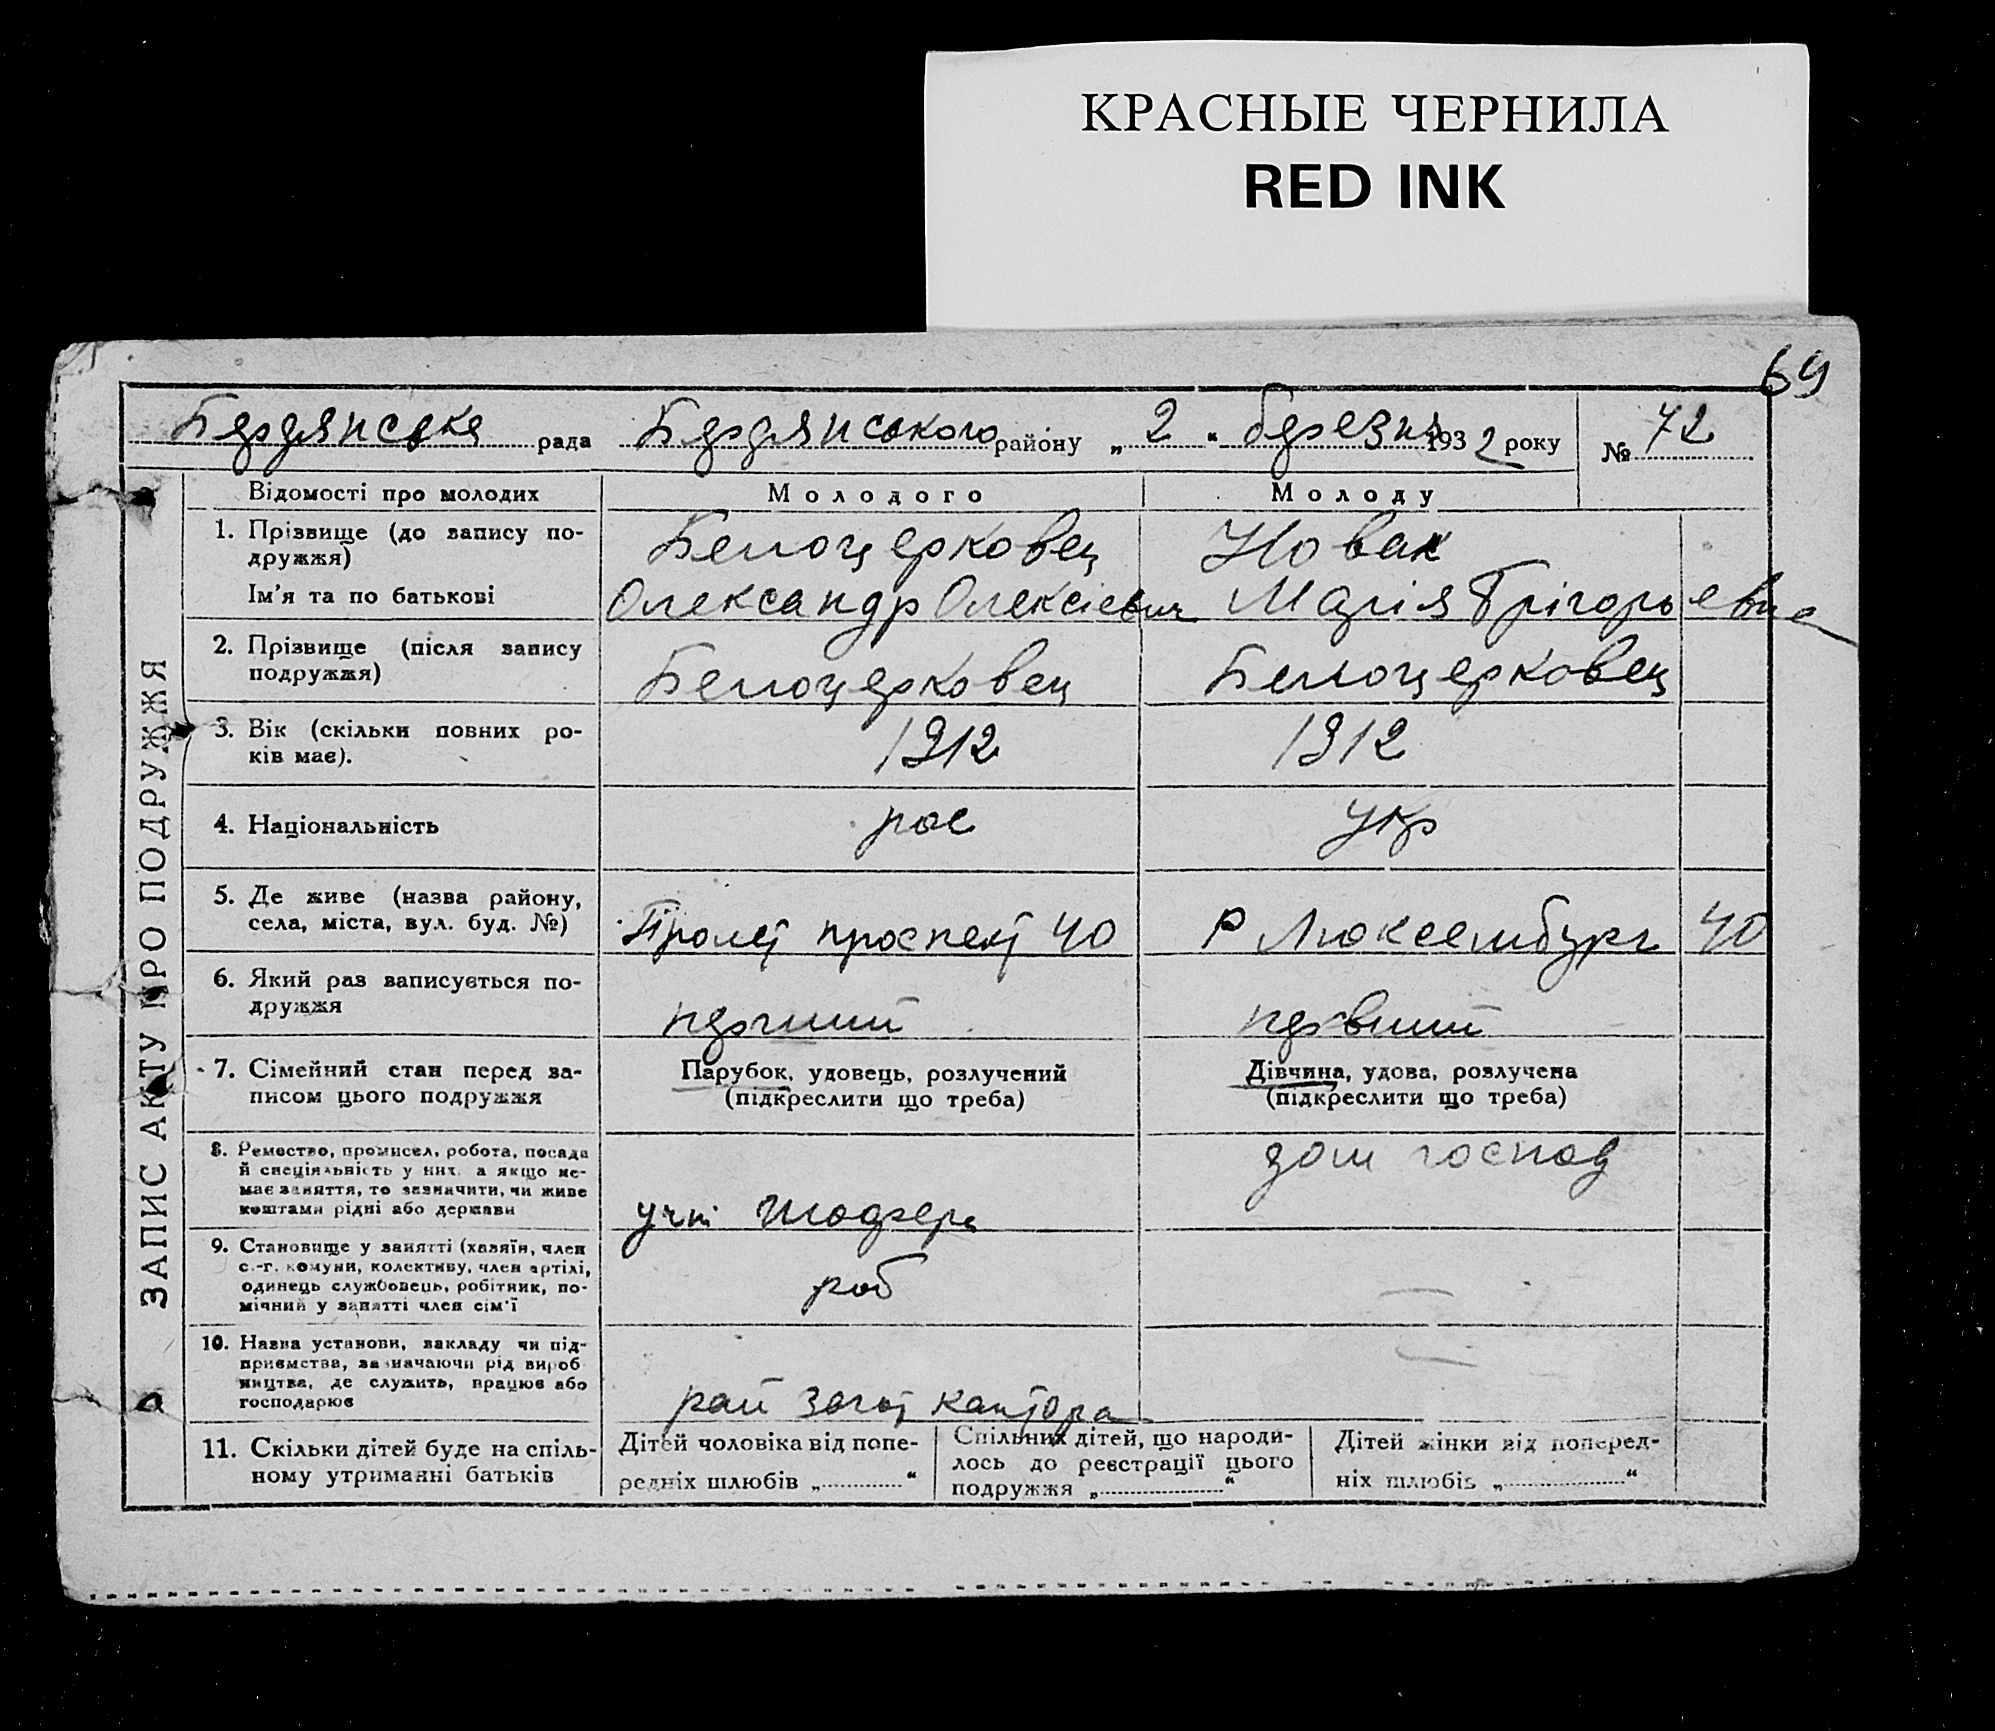 КРАСНЫЕ ЧЕРНИЛА
RED INK
69
Бердянська рада Бердянського району „ 2 “ березня 1932 року № 72
ЗАПИС АКТУ ПРО ПОДРУЖЖЯ
Відомості про молодих Молодого Молоду
1. Прізвище (до запису по- Белоцерковец Новак
дружжя)
Ім'я та по батькові Олександр Олексієвич Марія Грігорьевна
2. Прізвище (після запису Белоцерковец Белоцерковец
подружжя)
3. Вік (скільки повних ро- 1912 1912
ків має).
4. Національність рос укр
5. Де живе (назва району,
села, міста, вул. буд. №) Пролет проспект 40 Р Люксембург 40
6. Який раз записується по-
дружжя перший первший
7. Сімейний стан перед за- Парубок, удовець, розлучений Дівчина, удова, розлучена
писом цього подружжя (підкреслити що треба) (підкреслити що треба)
8. Ремество, промисел, робота, посада дом господ
й спеціяльність у них, а якщо не-
має заняття, то зазначити, чи живе
коштами рідні або держави учні шофера
9. Становище у занятті (хазяїн, член
с.-г. комуни, колективу, член артілі,
одинець службовець, робітник, по- роб —
мічний у занятті член сім'ї
10. Назва установи, закладу чи під-
приємства, зазначаючи рід вироб —
ництва, де служить, працює або
господарює рай загот кантора
11. Скільки дітей буде на спіль- Дітей чоловіка від попе- Спільних дітей, що народи- Дітей жінки від поперед-
ному утриманні батьків редніх шлюбів „ “ лось до реєстрації цього ніх шлюбів „ “
подружжя „ “